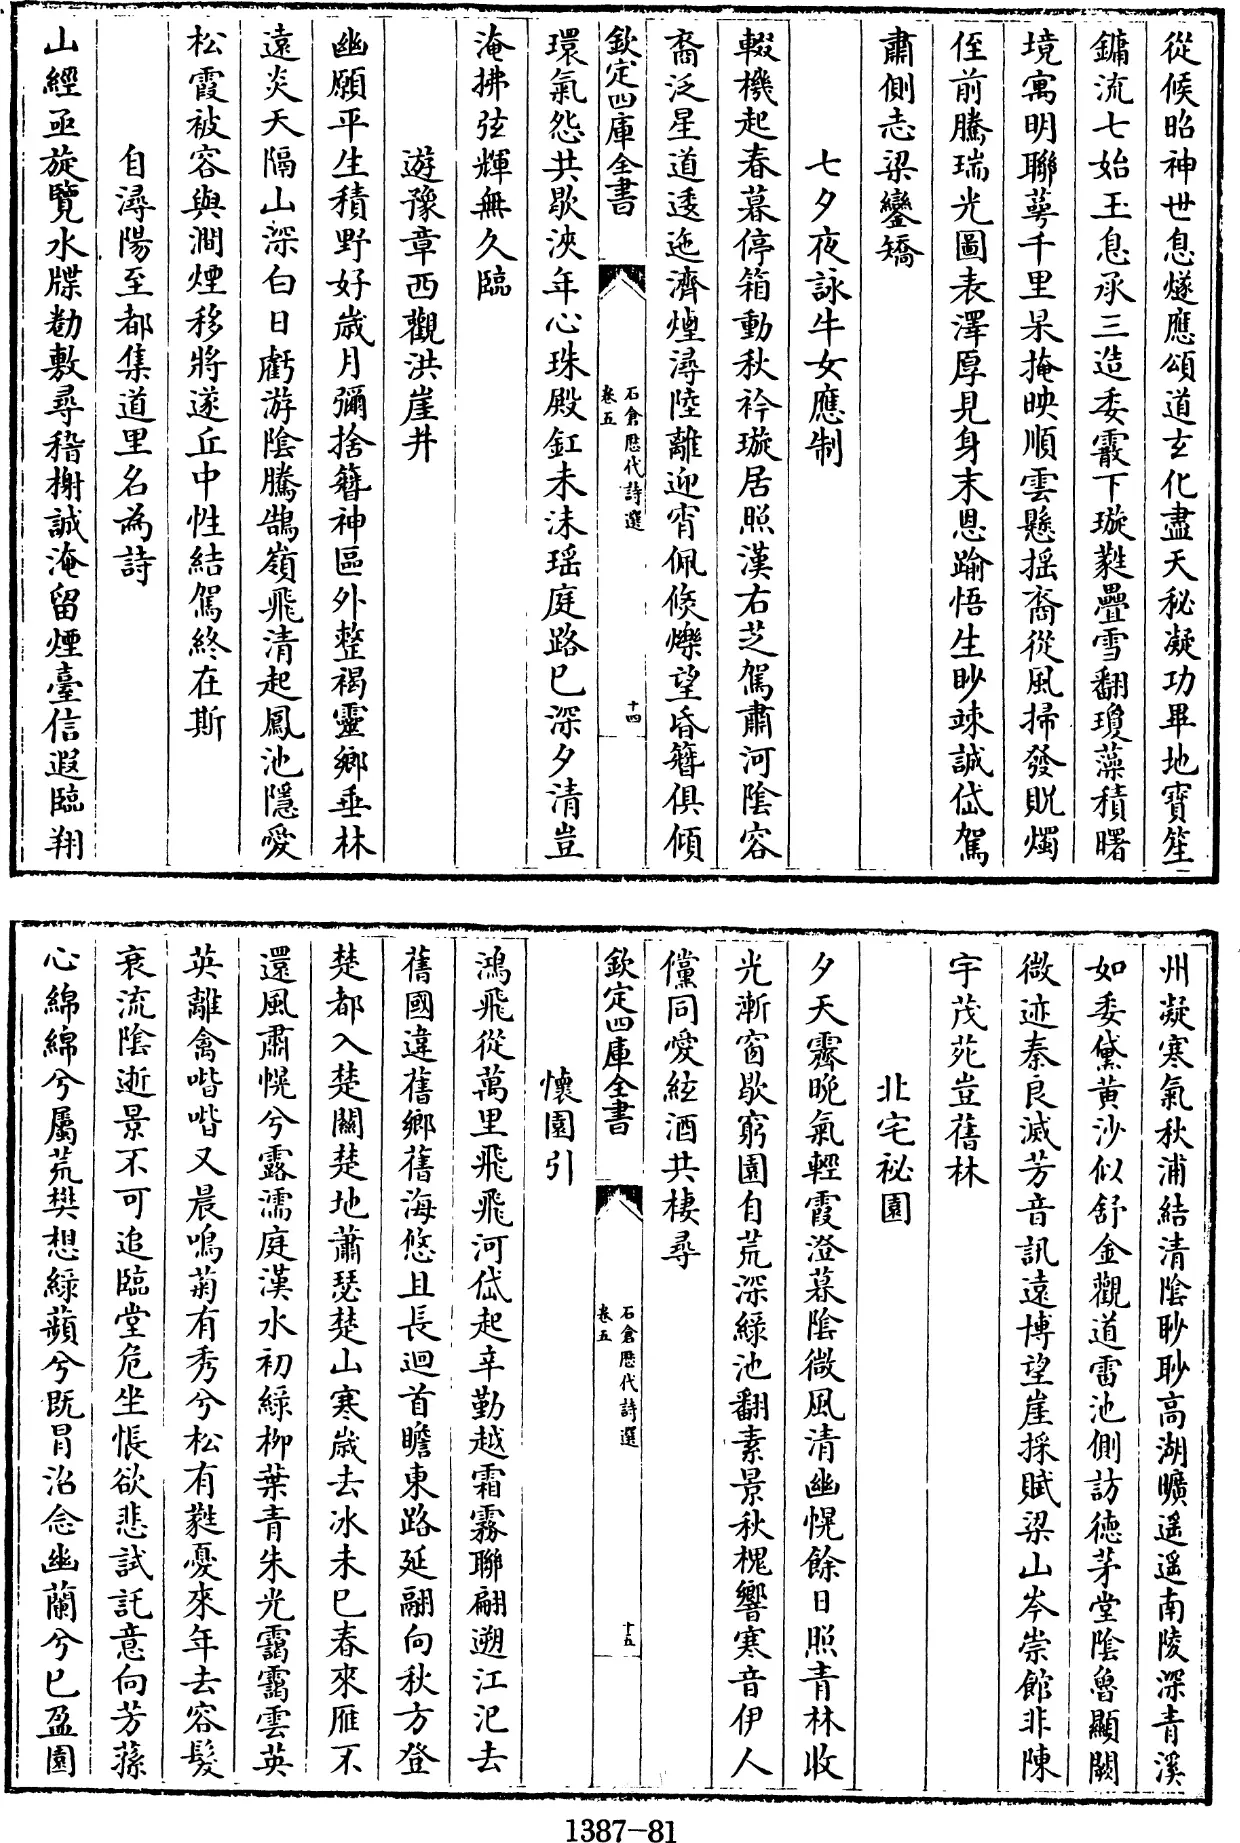 從候昭神世息燧應頌道玄化盡天秘凝功畢地寶笙
鏞流七始玉息承三造委霰下璇蕤疊雪翻瓊藻積曙
境寓明聯萼千里杲掩映順雲懸揺裔從風掃發貺燭
侄前騰瑞光圖表澤厚見身末恩踰悟生眇竦誠岱駕
肅側志梁鑾矯
七夕夜詠牛女應制
輟機起春暮停箱動秋衿璇居照漢右芝駕肅河陰容
裔泛星道逶迤濟煙潯陸離迎宵佩倐爍望昏簪俱傾
環氣怨共歇浹年心珠殿釭未沬瑶庭路已深夕清豈
淹拂弦輝無久臨
遊豫章西觀洪崖井
幽願平生積野好嵗月彌捨簪神區外整褐靈鄉垂林
遠炎天隔山深白日虧游陰騰鵠嶺飛清起鳳池隱愛
松霞被容與澗煙移將遂丘中性結駕終在斯
自潯陽至都集道里名為詩
山經亟旋覽水牒勌敷尋稽榭誠淹留煙臺信遐臨翔
欽定四庫全書
石倉歴代詩選
卷五
十四
州凝寒氣秋浦結清陰眇眇高湖曠遥遥南陵深青溪
如委黛黄沙似舒金觀道雷池側訪德茅堂陰魯顯闕
微迹秦良滅芳音訊遠博望崖採賦梁山岑崇館非陳
宇茂苑豈舊林
北宅祕園
夕天霽晚氣輕霞澄暮陰微風清幽幌餘日照青林收
光漸窗歇窮園自荒深緑池翻素景秋槐響寒音伊人
儻同愛絃酒共棲尋
懷園引
鴻飛從萬里飛飛河岱起辛勤越霜霧聯翩遡江汜去
舊國違舊鄉舊海悠且長迴首瞻東路延翮向秋方登
楚都入楚關楚地蕭瑟楚山寒嵗去冰未已春來雁不
還風肅幌兮露濡庭漢水初綠柳葉青朱光靄靄雲英
英離禽喈喈又晨鳴菊有秀兮松有蕤憂來年去容髮
衰流陰逝景不可追臨堂危坐悵欲悲試託意向芳蓀
心綿綿兮屬荒樊想緑蘋兮既冐沼念幽蘭兮已盈園
欽定四庫全書
石倉歴代詩選
卷五
十五
1387-81